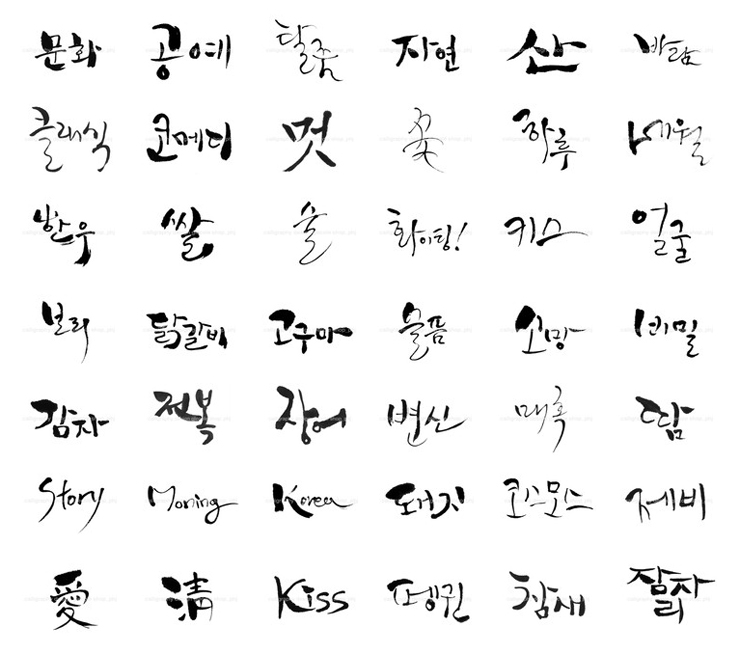 문화 공예 탈춤 자연 산 바람
클래식 코메디 멋 꽃 하루 세월
한우 쌀 술 화이팅! 키스 얼굴
보리 닭갈비 고구마 물품 소망 비밀
감자 전복 장어 변신 매혹 땀
Story Moning Korea 돼지 코스모스 제비
愛 淸 Kiss 펭귄 참새 잠자리